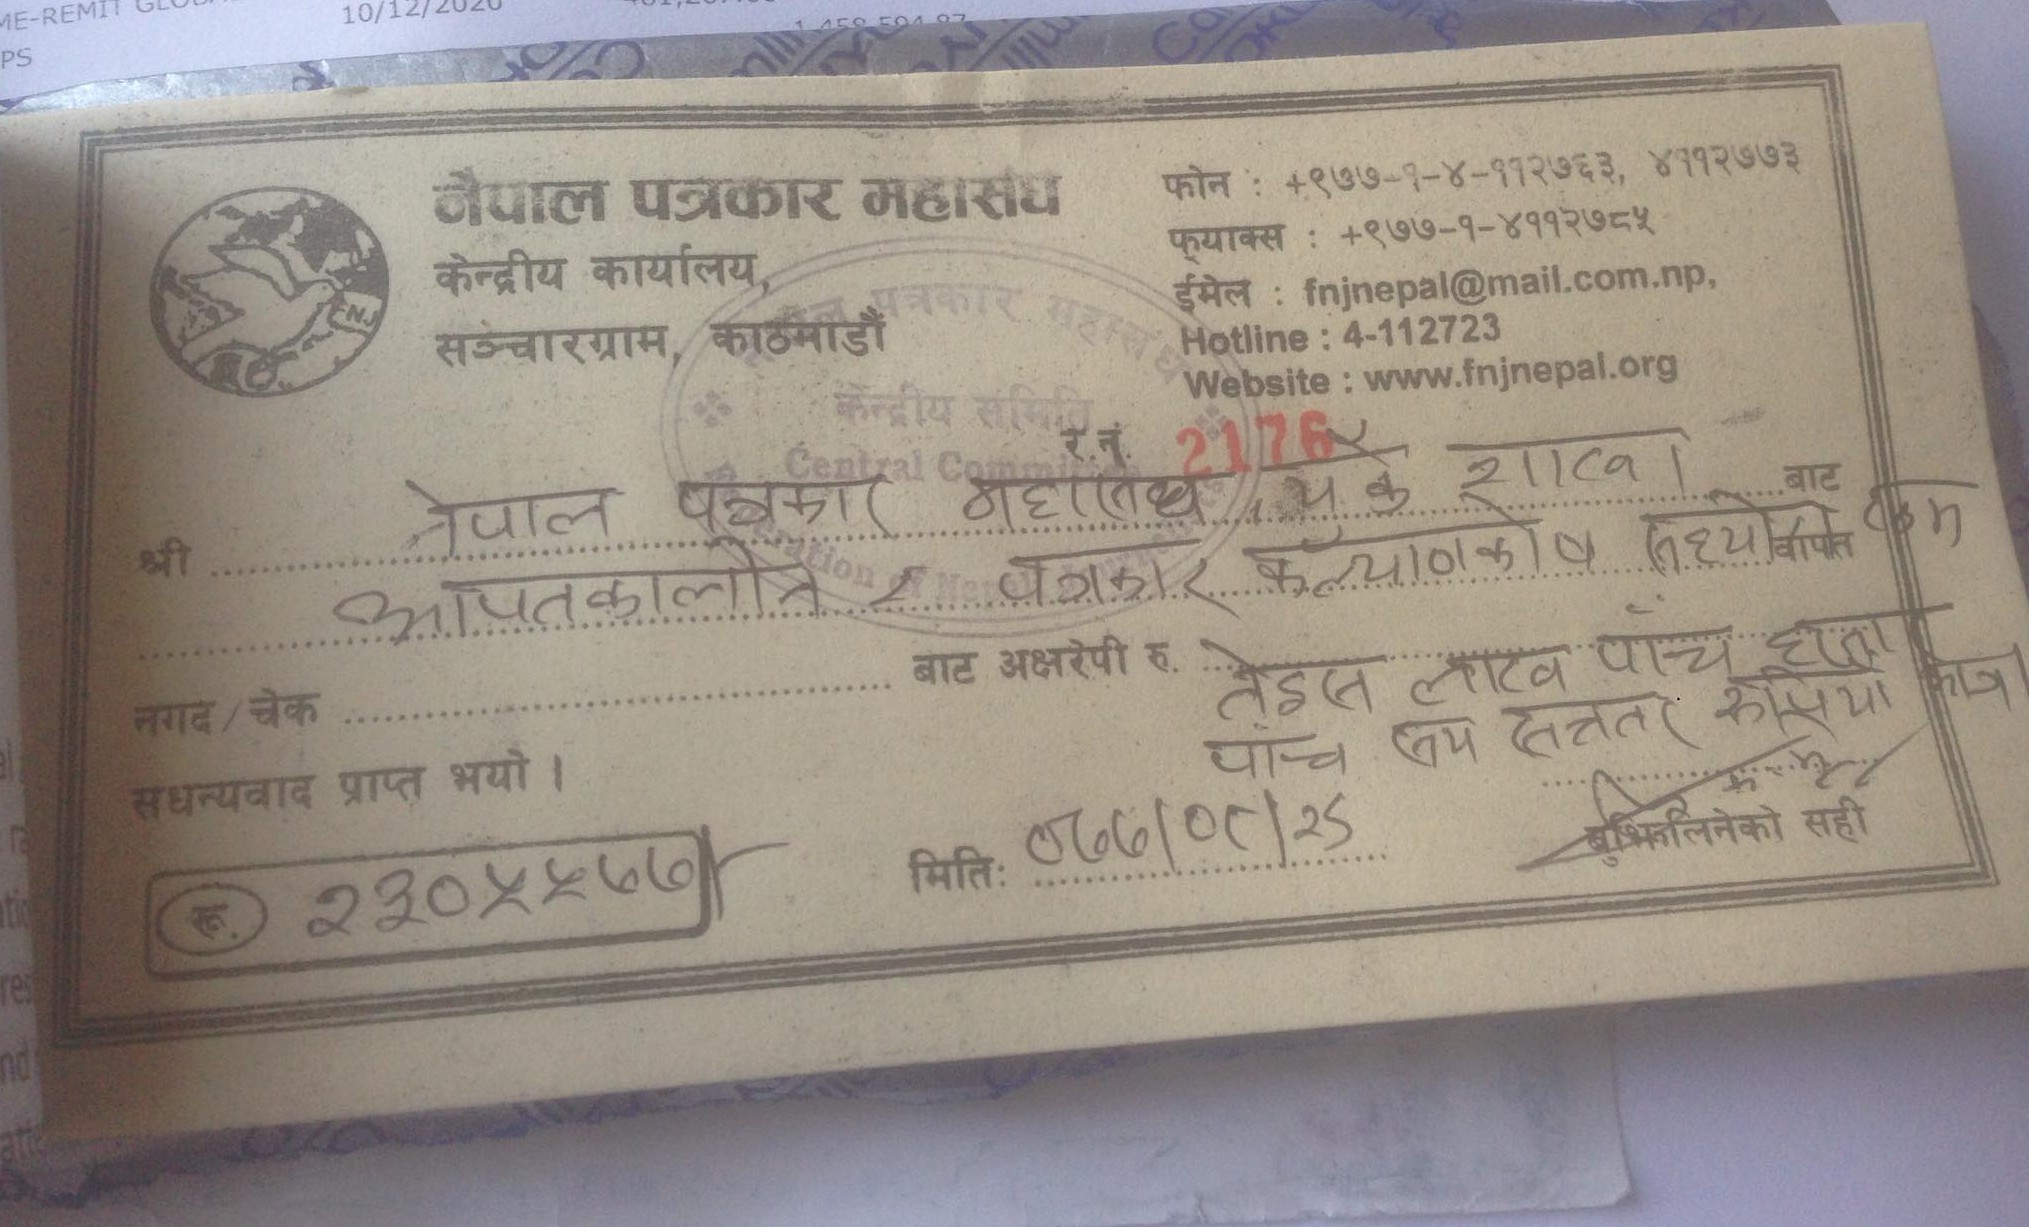 ME-REMIT GLOBA
10/12/2020
PS
नेपाल पत्रकार महासंघ
केन्द्रीय कार्यालय,
सञ्चारग्राम, काठमाडौं
फोन : +९७७-१-४-११२७६३, ४११२७७३
फ्याक्स : +९७७-१-४११२७८५
ईमेल : fnjnepal@mail.com.np,
Hotline : 4-112723
Website : www.fnjnepal.org
FNJ
पत्रकार महासंघ
केन्द्रीय समिति
Central Committee
र.नं. 2176
श्री नेपाल पत्रकार महासंघ, यू के शाखा बाट
आपतकालीन र पत्रकार कल्याणकोष वापत
नगद/चेक बाट अक्षरेपी रु. तेइस लाख पाँच हजार
पाँच सय सतहत्तर रूपैया मात्र
सधन्यवाद प्राप्त भयो ।
रू. २३०५५७७/-
मिति: ०७७/०८/२५
बुझिलिनेको सही